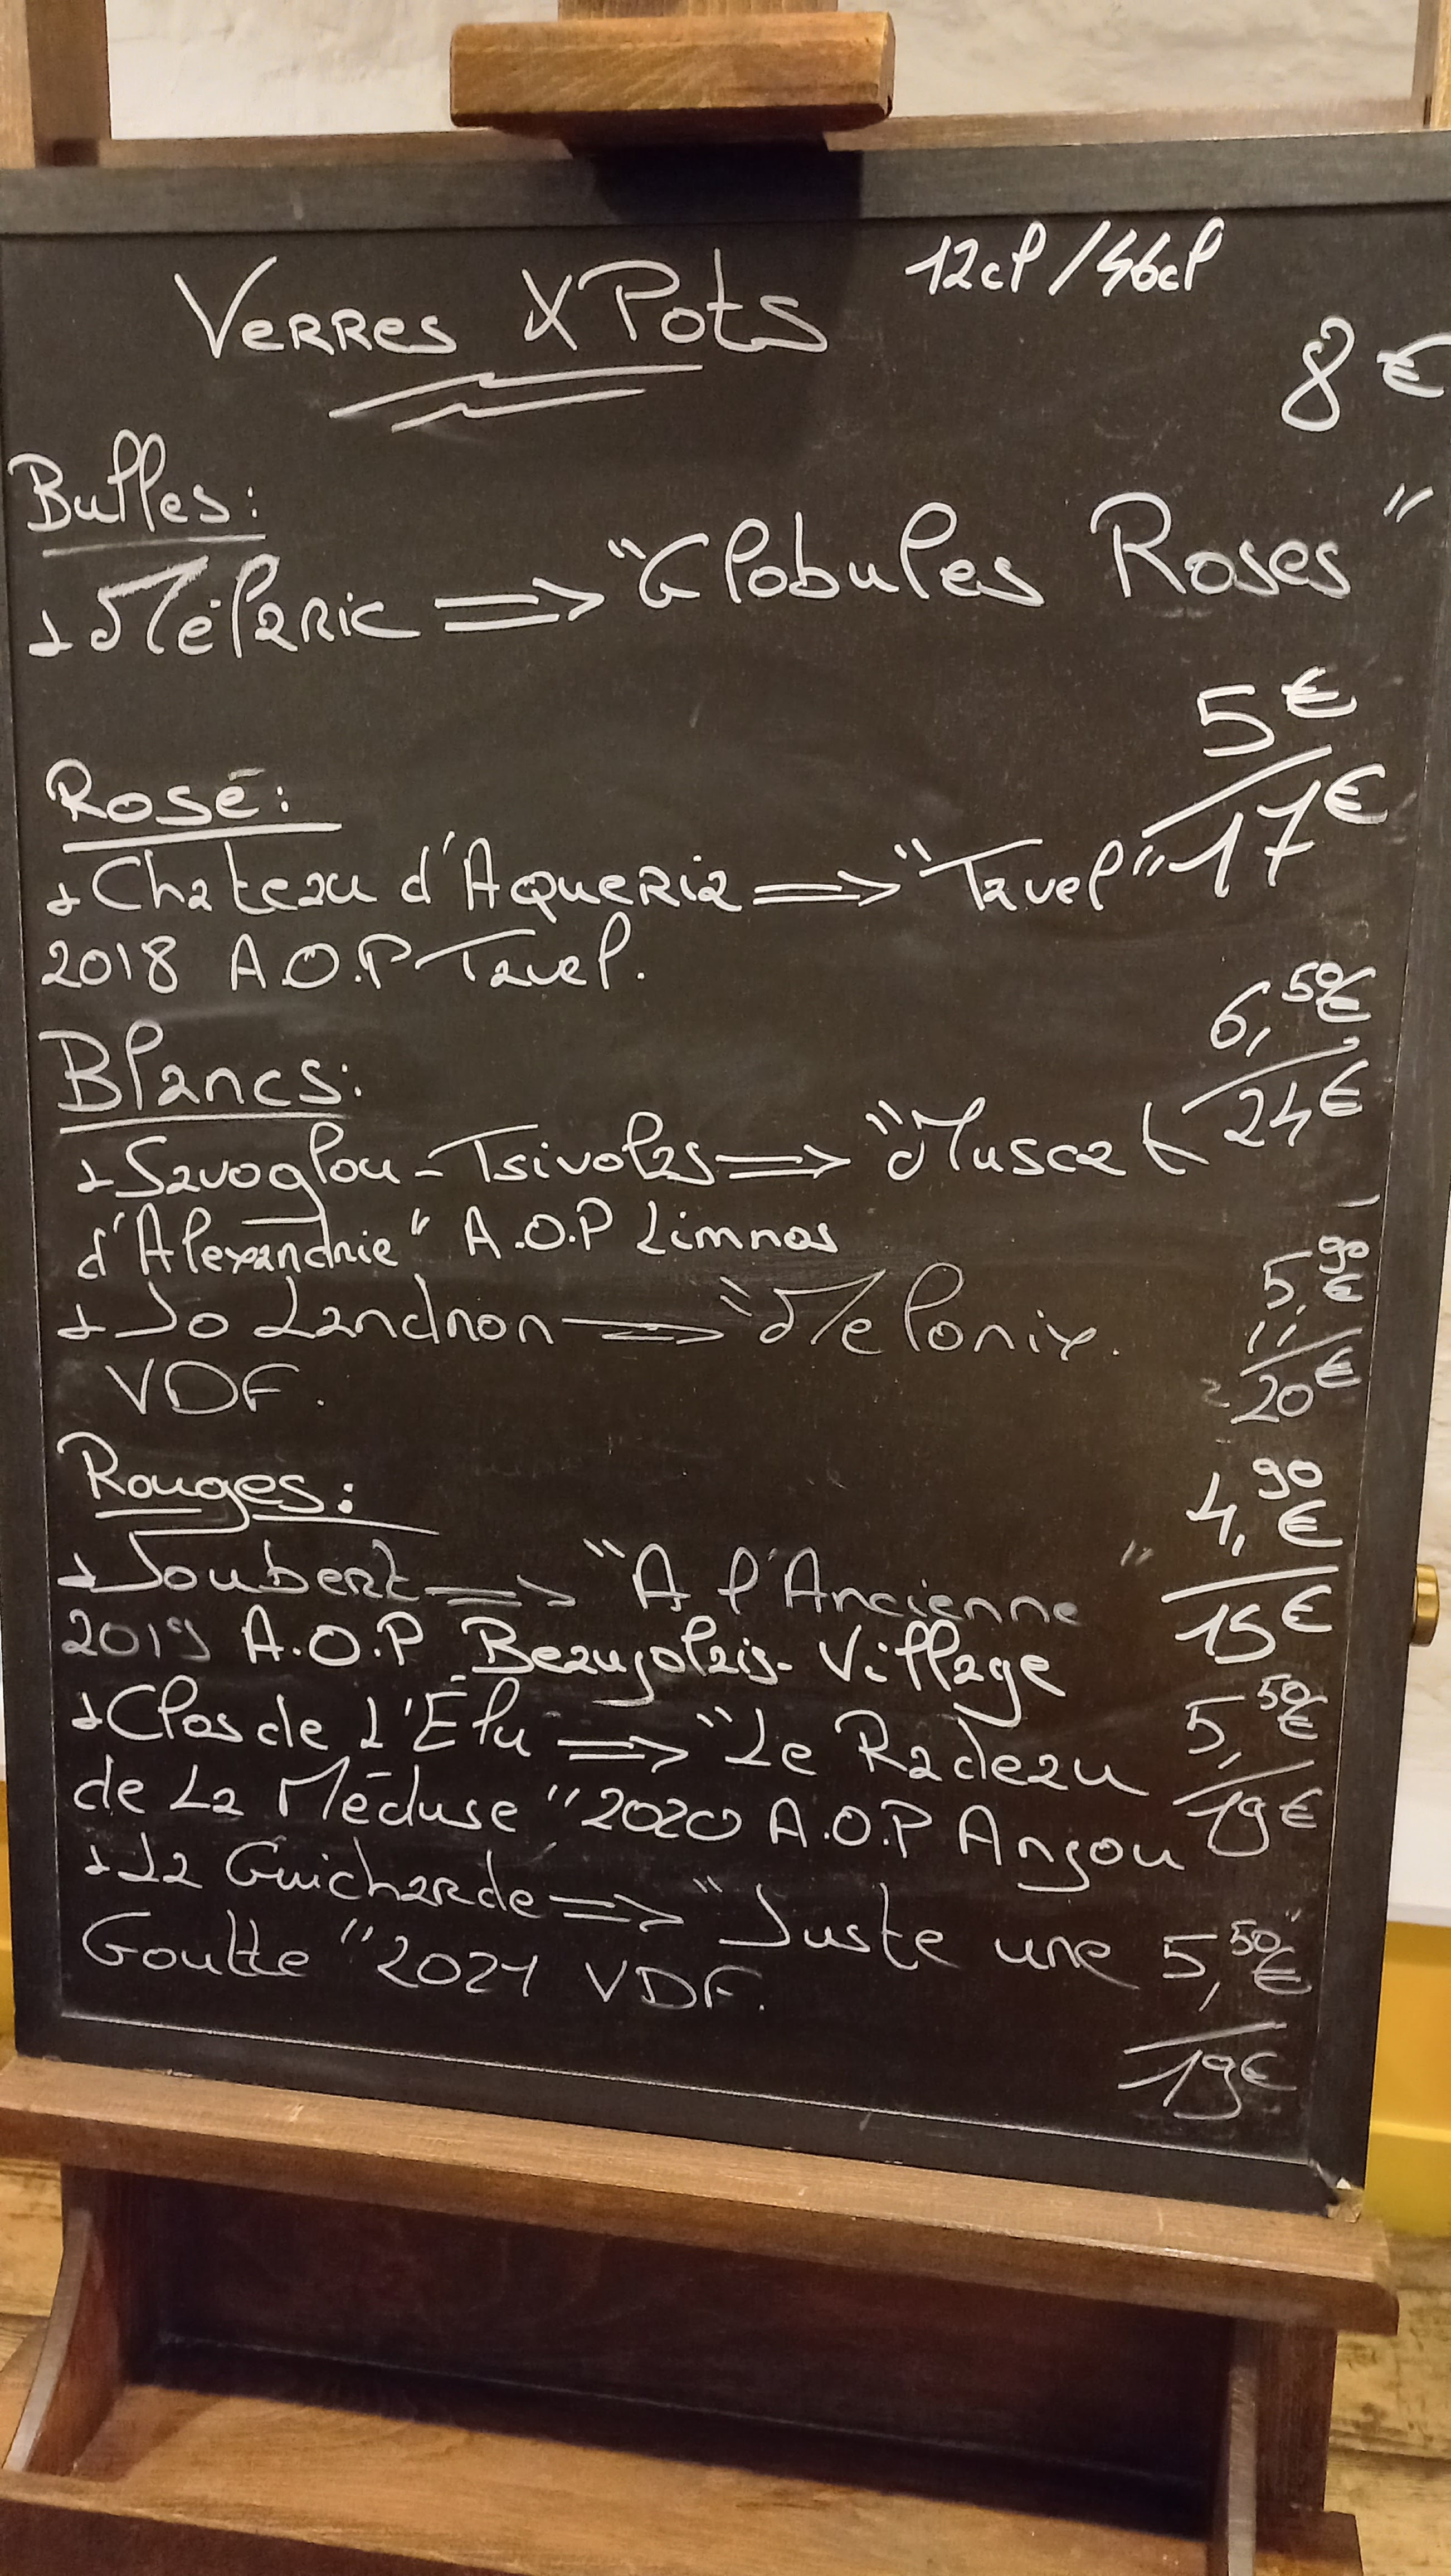 Verres X Pots 12cl/46cl
8€
Bulles:
→Mélaric ⇒ "Globules Roses"
5€
Rosé:
17€
→Chateau d'Aqueria ⇒ "Tavel"
2018 A.O.P Tavel.
6,50€
Blancs:
24€
→Savoglou-Tsivolas ⇒ "Muscat
d'Alexandrie" A.O.P Limnos
5,90€
→Jo Landron ⇒ "Melonix.
20€
VDF.
Rouges:
4,90€
→Joubert ⇒ "A l'Ancienne"
15€
2019 A.O.P Beaujolais-Village
→Clos de L'Élu ⇒ "Le Radeau 5,50€
de La Méduse" 2020 A.O.P Anjou 19€
→La Guicharde ⇒ "Juste une 5,50€
Goutte" 2021 VDF.
19€